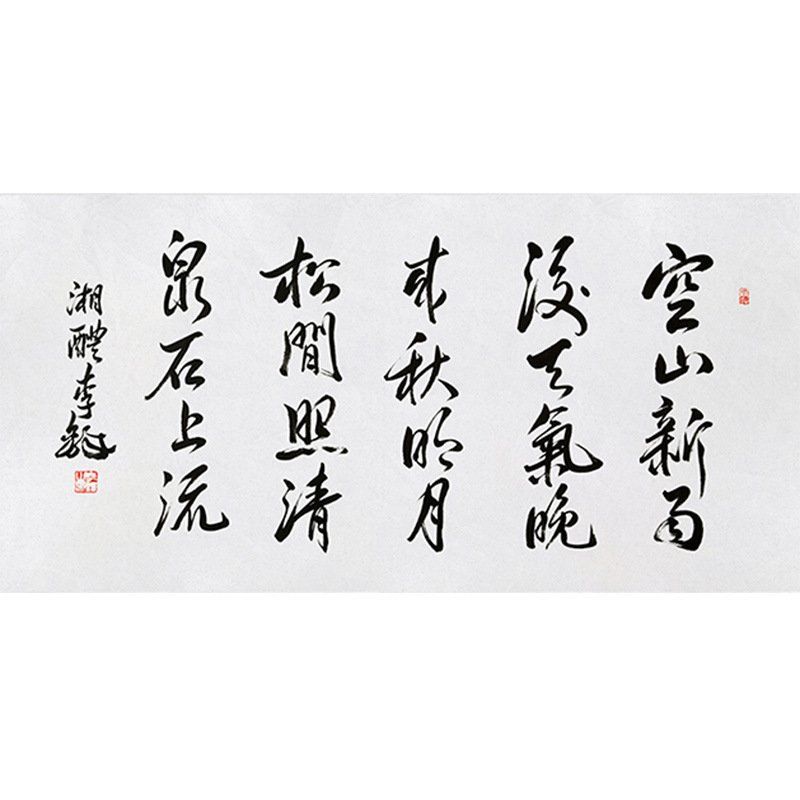 空山新雨
後天氣晚
来秋明月
松間照清
泉石上流
湘醴李